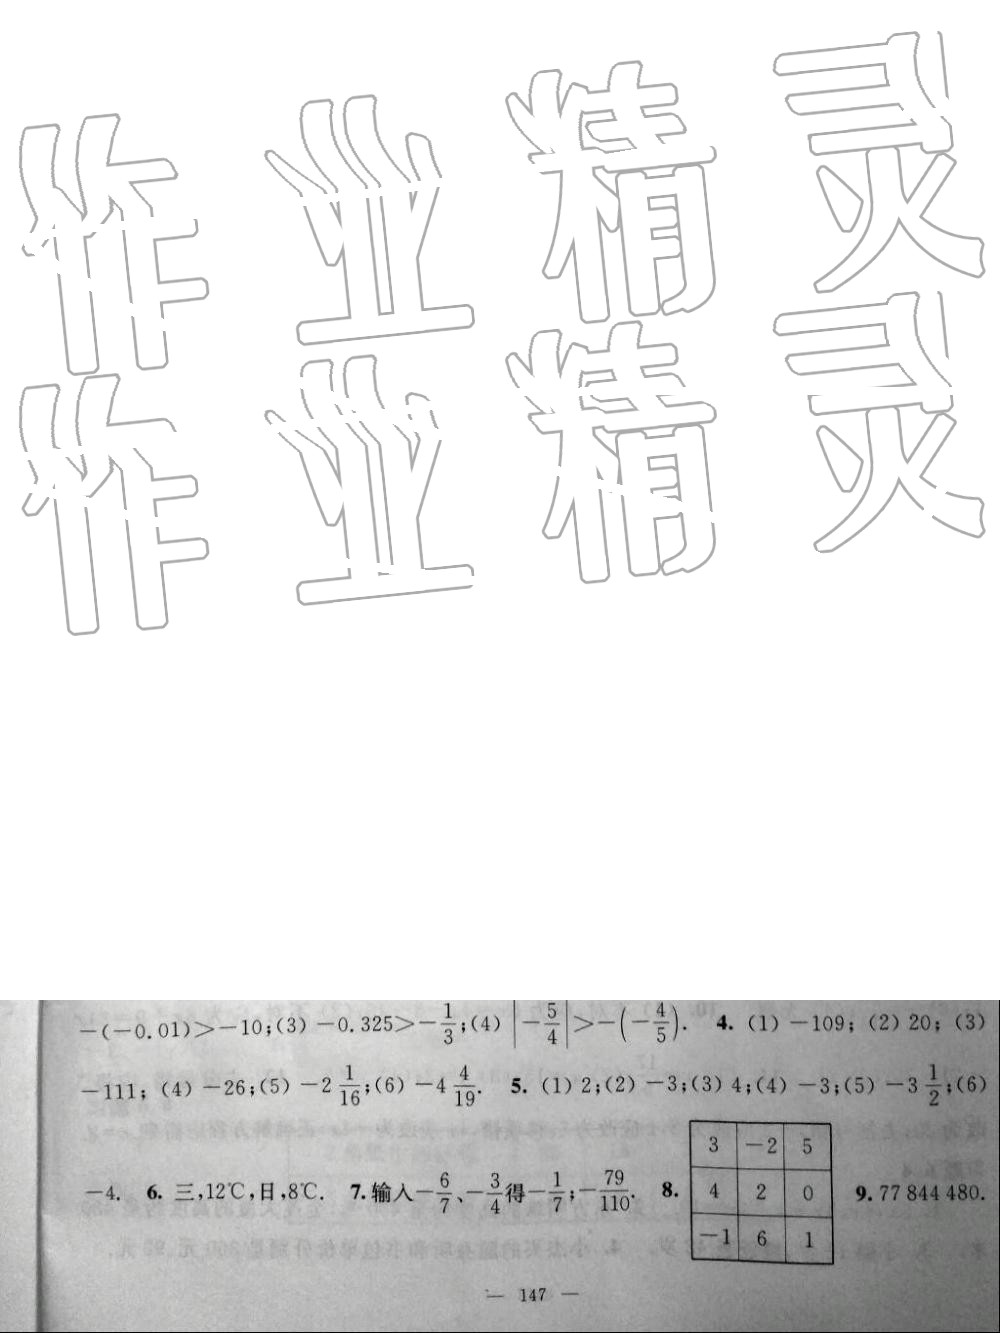 作业精灵
作业精灵
-(-0.01)>-10;(3)-0.325>-1/3;(4)|-5/4|>-(-4/5). 4. (1)-109;(2)20;(3)
-111;(4)-26;(5)-2 1/16;(6)-4 4/19. 5. (1)2;(2)-3;(3)4;(4)-3;(5)-3 1/2;(6)
-4. 6. 三,12℃,日,8℃. 7. 输入-6/7、-3/4得-1/7;-79/110. 8. 9. 77 844 480.
3 -2 5
4 2 0
-1 6 1
— 147 —